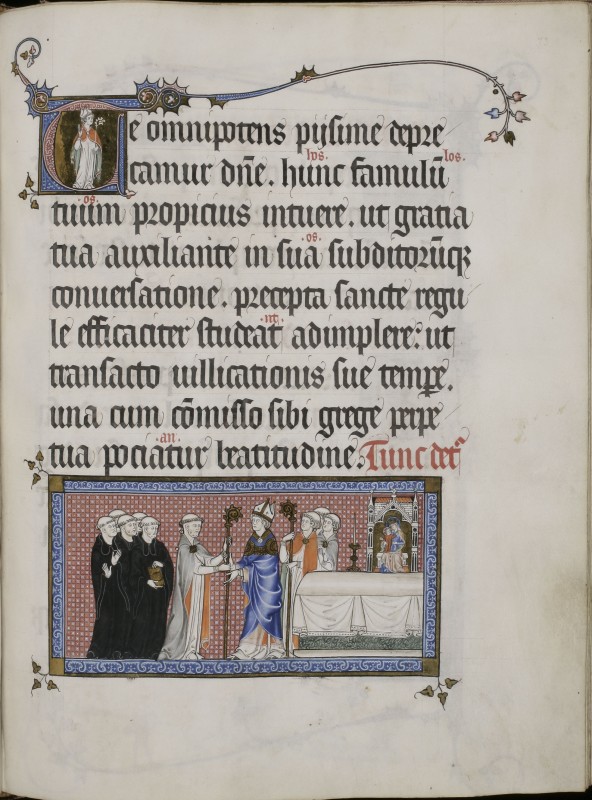 Te omnipotens pijsime depre
camur dñe. hunc famulũ
los. los.
tuum propicius intuere. ut gratia
os.
tua auxiliante in sua subditorũq;
os.
conuersatione. precepta sancte regu
le efficaciter studeat adimplere: ut
nt.
transacto uillicationis sue tempe.
una cum cõmisso sibi grege perpe
tua pociatur beatitudine. Tunc det
an.